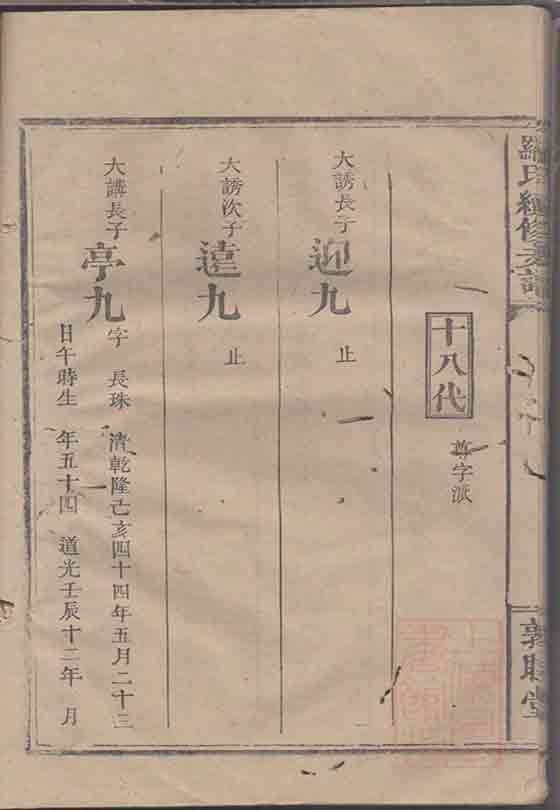 羅氏續修支譜
敦睦堂
十八代
尊字派
大誘長子
迎九
止
大誘次子
遠九
止
大講長子
亭九
字 長珠 清乾隆己亥四十四年五月二十三
日午時生 年五十四 道光壬辰十二年 月